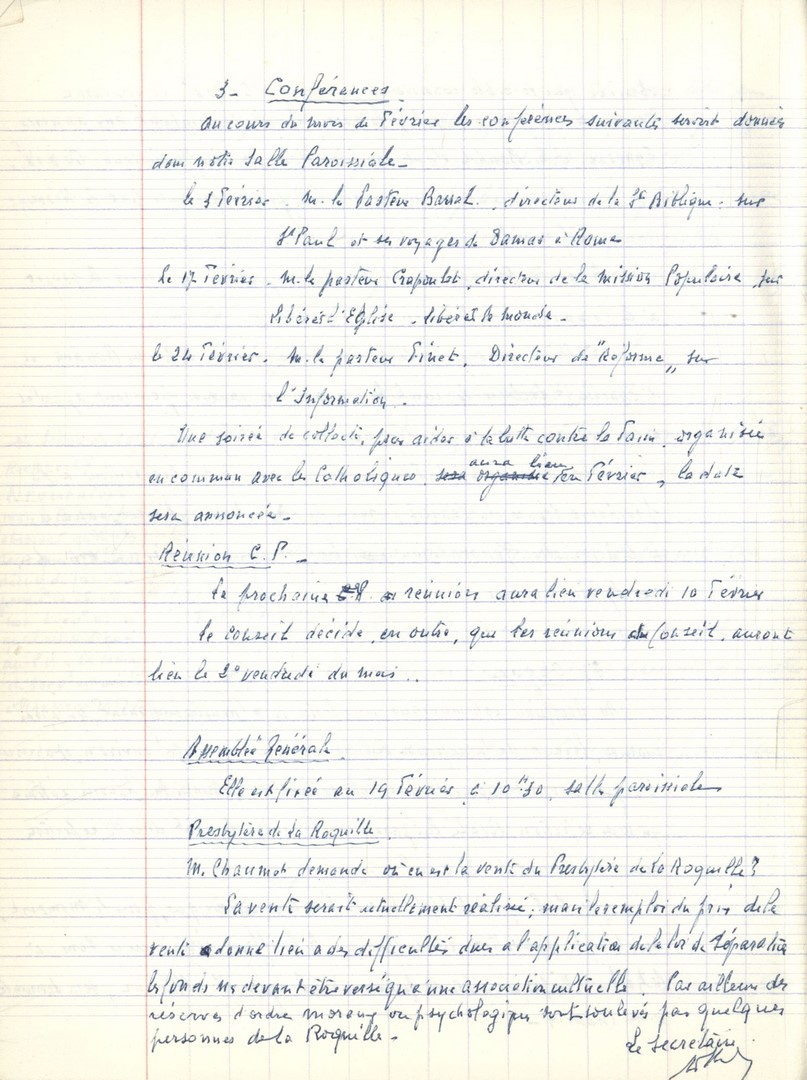 3- Conférences
au cours du mois de Février les conférences suivantes seront données
dans notre Salle Paroissiale -
le 3 Février . M. le Pasteur Barral . directeur de la Sté Biblique . sur
St Paul et ses voyages de Damas à Rome
le 17 Février . M. le pasteur Crapoulet, directeur de la Mission Populaire, sur
Libérez l'Eglise - libérez le monde -
le 24 Février . M. le pasteur Finet . Directeur de "Réforme" sur
l'Information .
Une soirée de collecte, pour aider à la lutte contre la Faim organisée
en commun avec les Catholiques aura lieu en Février, la date
sera annoncée -
Réunion C.P. -
La prochaine réunion aura lieu vendredi 10 Février
Le conseil décide, en outre, que les réunions du Conseil, auront
lieu le 2° vendredi du mois ..
Assemblée Générale
Elle est fixée au 19 Février à 10H30 salle paroissiale
Presbytère de La Roquille
M. Chaumet demande où en est la vente du Presbytère de la Roquille ?
La vente serait actuellement réalisée ; mais le remploi du prix de la
vente donne lieu à des difficultés dues à l'application de la loi de Séparation
les fonds ne devant être versés qu'à une association cultuelle . Par ailleurs des
réserves d'ordre moraux ou psychologique sont soulevés par quelques
personnes de la Roquille -
Le Secrétaire